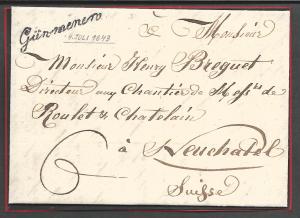 Gümmenen
4 JULI 1843
à Monsieur
Monsieur Henry Breguet
Directeur aux Chantier de Mess^rs de
Roulet & Chatelain
6 à Neuchatel
Suisse